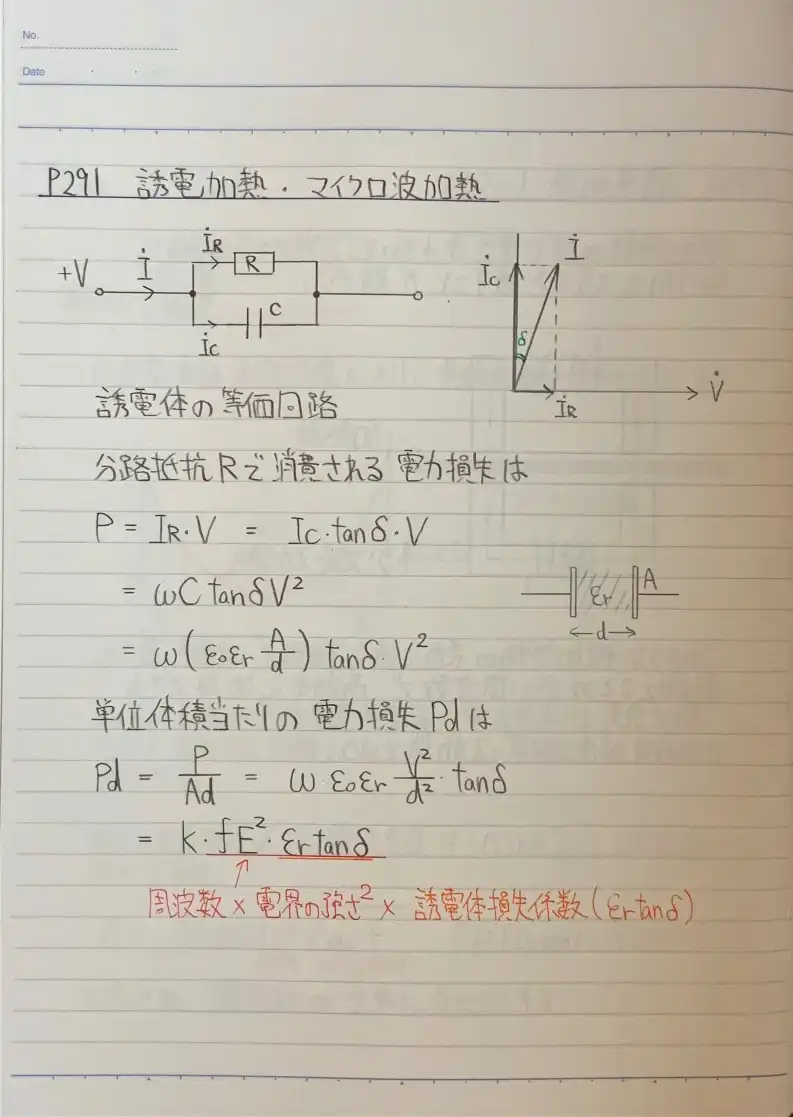 No.
Date
P291 誘電加熱・マイクロ波加熱
+V İ İR R İC C
İC İ δ İR V̇
誘電体の等価回路
分路抵抗Rで消費される電力損失は
P = IR・V = IC・tanδ・V
= ωC tanδV²
εr A d
= ω(ε0εr A/d) tanδ・V²
単位体積当たりの電力損失Pdは
Pd = P/Ad = ω・ε0εr V²/d²・tanδ
= k・fE²・εr tanδ
周波数×電界の強さ²×誘電体損失係数(εr tanδ)